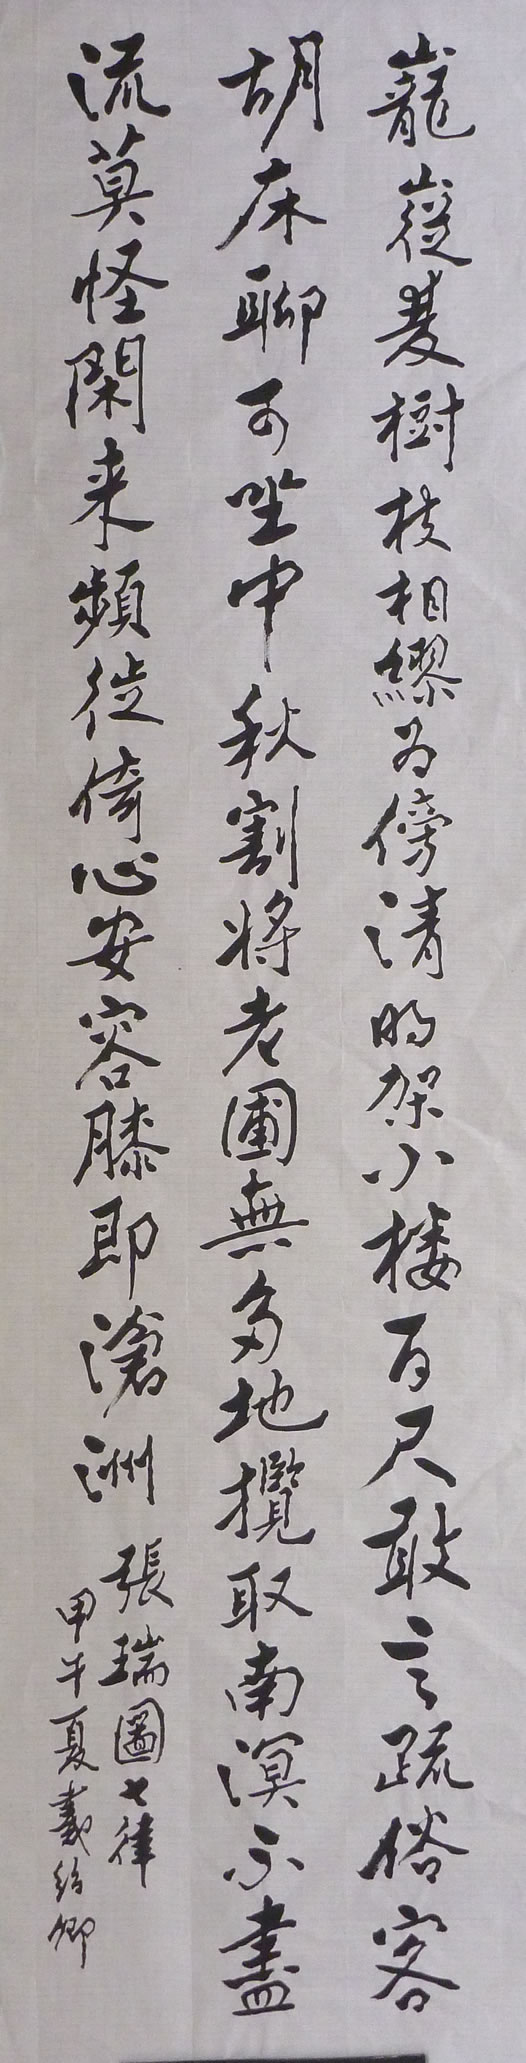 巃嵸叢樹枝相繆為傍清明架小樓百尺敢言疏俗客
胡床聊可坐中秋割將老圃無多地攬取南溟不盡
流莫怪閑来頻徙倚心安容膝即滄洲
張瑞圖七律
甲午夏戴绍卿